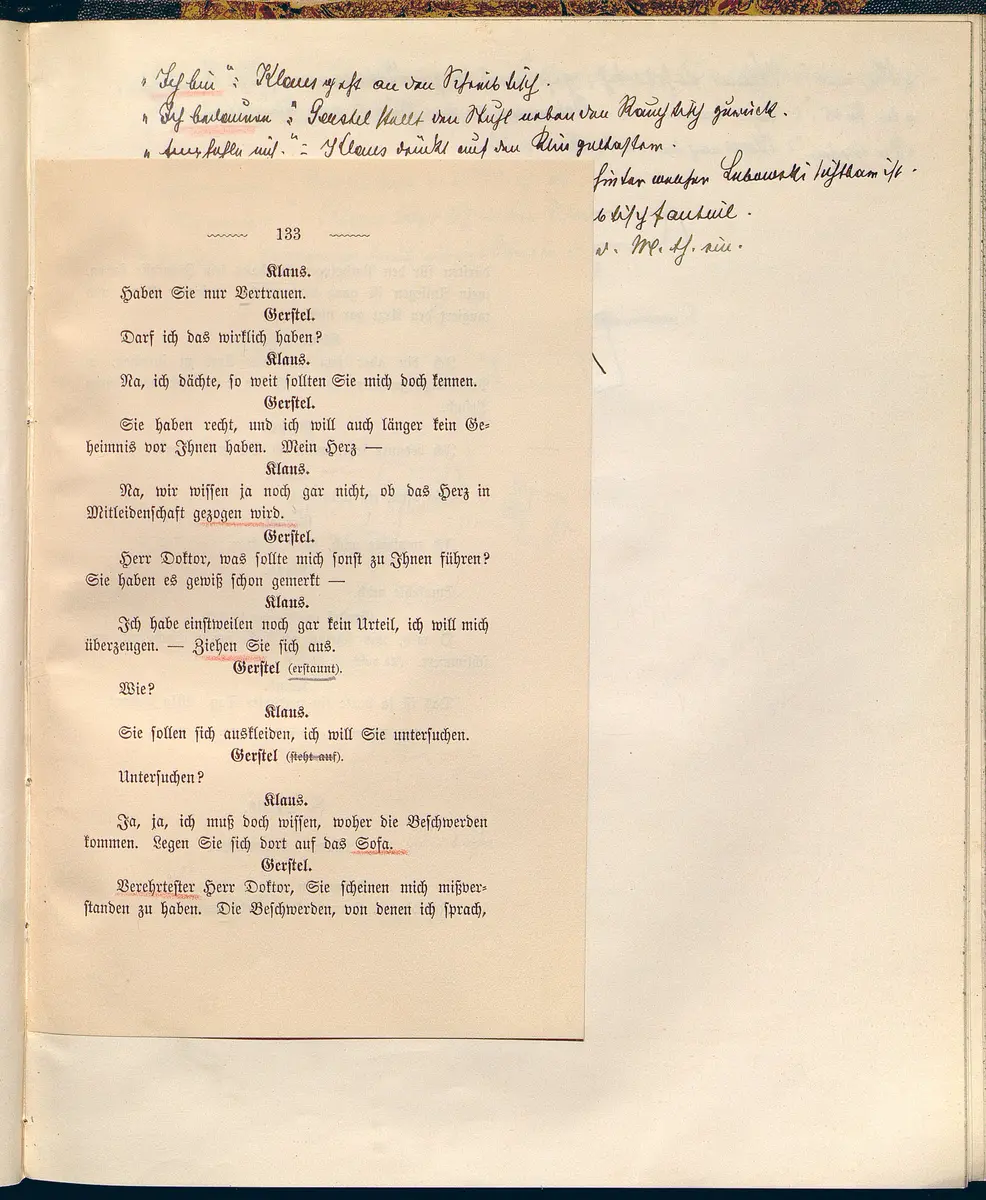 „Ich bin“: Klaus geht an den Schreibtisch.
„Ich bedauere“: Gerstel stellt den Stuhl neben den Rauchtisch zurück.
„Empfehle mich.“ = Klaus drückt auf den Klingeltaster.
hinter welcher Lubowski sichtbar ist.
btischfauteuil.
M. th. ein.
133
Klaus.
Haben Sie nur Vertrauen.
Gerstel.
Darf ich das wirklich haben?
Klaus.
Na, ich dächte, so weit sollten Sie mich doch kennen.
Gerstel.
Sie haben recht, und ich will auch länger kein Ge-
heimnis vor Ihnen haben. Mein Herz —
Klaus.
Na, wir wissen ja noch gar nicht, ob das Herz in
Mitleidenschaft gezogen wird.
Gerstel.
Herr Doktor, was sollte mich sonst zu Ihnen führen?
Sie haben es gewiß schon gemerkt —
Klaus.
Ich habe einstweilen noch gar kein Urteil, ich will mich
überzeugen. — Ziehen Sie sich aus.
Gerstel (erstaunt).
Wie?
Klaus.
Sie sollen sich auskleiden, ich will Sie untersuchen.
Gerstel (steht auf).
Untersuchen?
Klaus.
Ja, ja, ich muß doch wissen, woher die Beschwerden
kommen. Legen Sie sich dort auf das Sofa.
Gerstel.
Verehrtester Herr Doktor, Sie scheinen mich mißver-
standen zu haben. Die Beschwerden, von denen ich sprach,